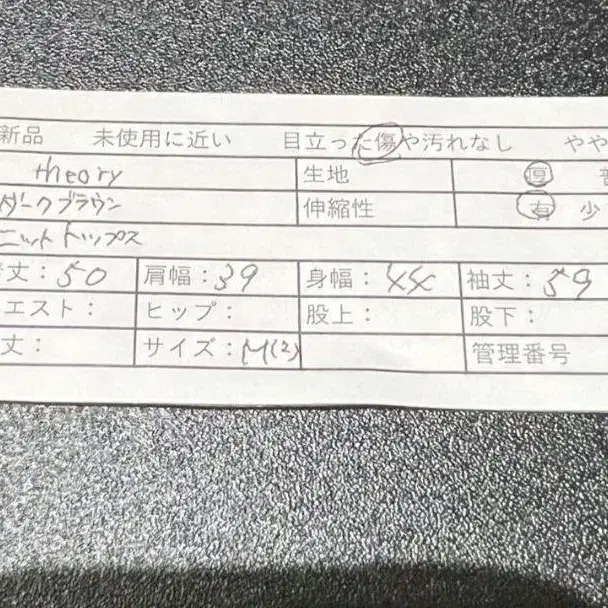 新品 未使用に近い 目立った傷や汚れなし やや
theory 生地 厚 普
ダークブラウン 伸縮性 有 少
ニットトップス
丈：50 肩幅：39 身幅：44 袖丈：59
エスト： ヒップ： 股上： 股下：
丈： サイズ：M(2) 管理番号